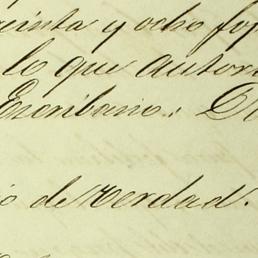 reinta y ocho fo
lo que autor
Escribano: D
o de verdad.